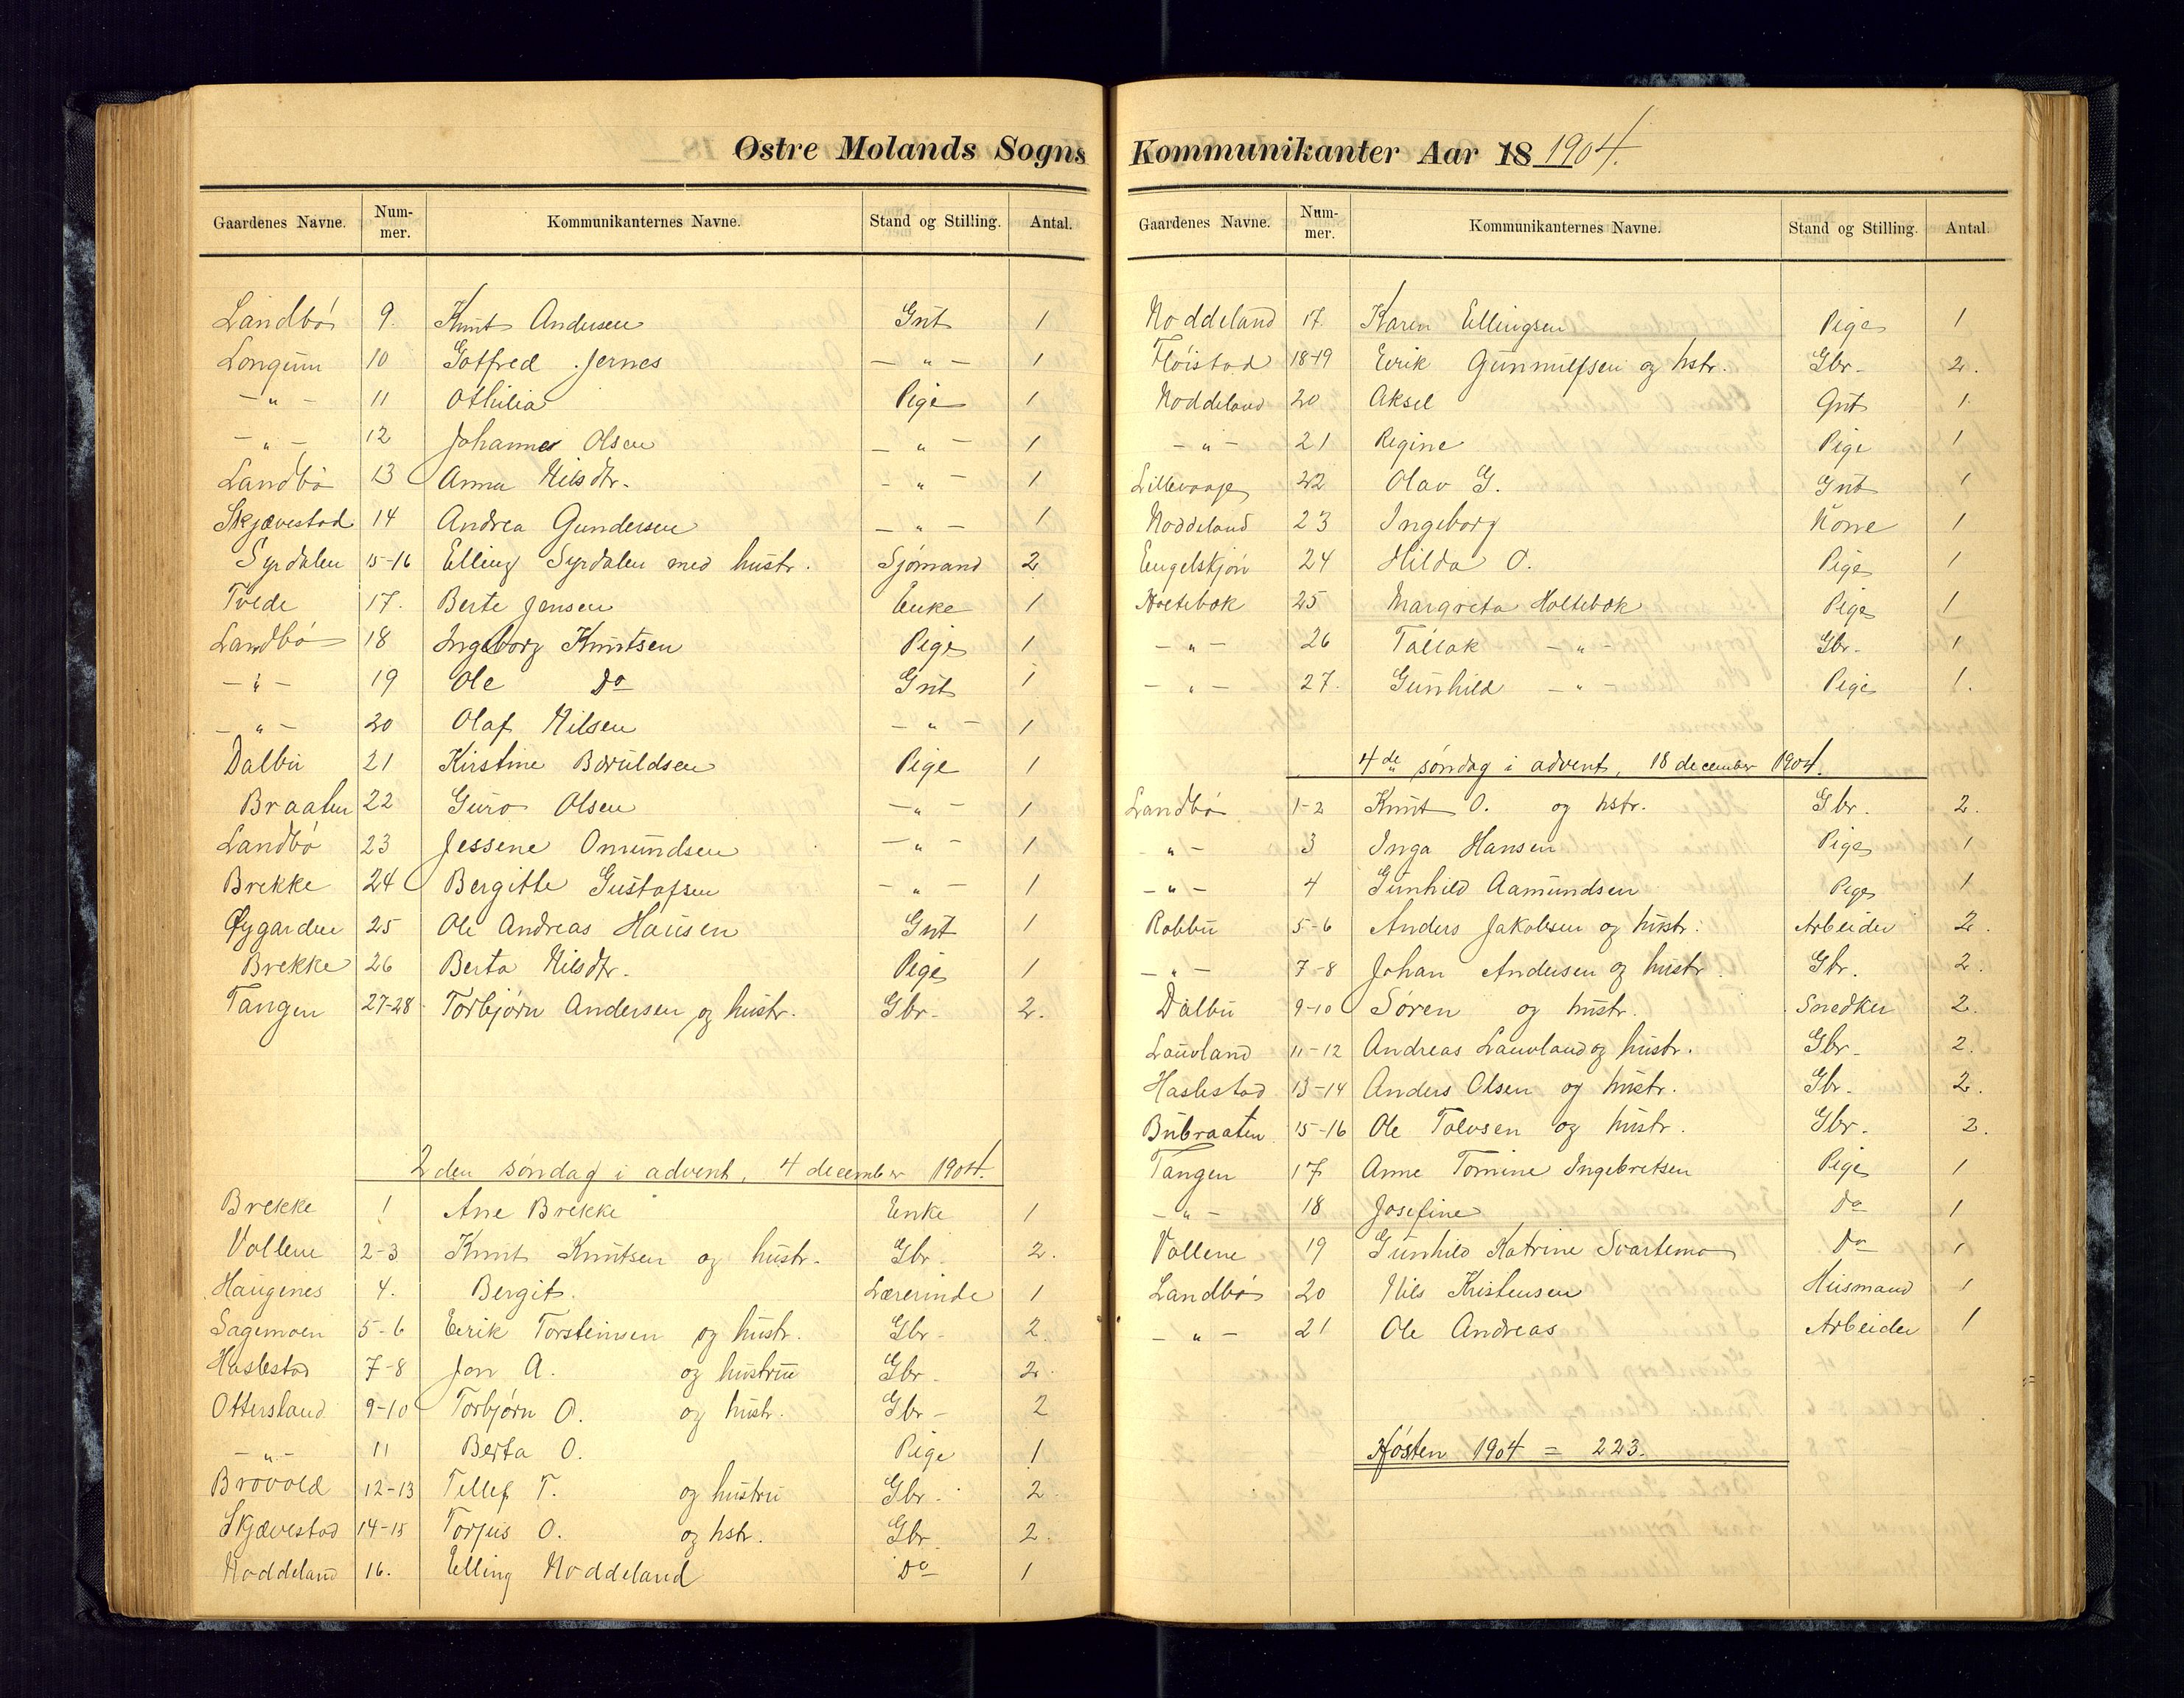 Østre Molands Sogns
Gaardenes Navne. Num-mer. Kommunikanternes Navne. Stand og Stilling. Antal.
Landbø 9. Knut Andersen Gut 1
Longum 10 Gotfred Jernes — " — 1
— " — 11 Othilia Pige 1
— " — 12 Johanne Olsen — " — 1
Landbø 13 Anna Nilsdtr. — " — 1
Skjævestad 14 Andrea Gundersen — " — 1
Syrdalen 15-16 Elling Syrdalen med hustr. Sjømand 2
Tvede 17. Berte Jensen Enke 1
Landbø 18 Ingeborg Knutsen Pige 1
— " — 19 Ole Do Gut 1
— " — 20 Olaf Nilsen — " — 1
Dalbu 21 Kirstine Boruldsen Pige 1
Braaten 22 Guro Olsen — " — 1
Landbø 23 Jessene Omundsen — " — 1
Brekke 24 Bergitte Gustafsen — " — 1
Øygarden 25 Ole Andreas Hansen Gut 1
Brekke 26 Berta Nilsdtr. Pige 1
Tangen 27-28 Torbjørn Andersen og hustr. Gbr. 2.
2den søndag i advent, 4 december 1904.
Brekke 1 Ane Brekke Enke 1
Vollene 2-3 Knut Knutsen og hustr. Gbr. 2.
Haugenes 4. Bergit. Lærerinde 1
Sagemoen 5-6 Eerik Torsteinsen og hustr. Gbr. 2.
Haslestad 7-8 Jon A. og hustru Gbr. 2.
Ottersland 9-10 Torbjørn O. og hustr. Gbr. 2
— " — 11 Berta O. Pige 1
Brovold 12-13 Tellef T. og hustru Gbr. 2.
Skjævestad 14-15 Torjus O. og hstr. Gbr. 2.
Noddeland 16. Elling Noddeland Do 1
Kommunikanter Aar 18 1904.
Gaardenes Navne. Num-mer. Kommunikanternes Navne. Stand og Stilling. Antal.
Noddeland 17. Karen Ellingsen Pige 1
Fløistad 18-19 Eerik Gunnulfsen og hstr. Gbr. 2.
Noddeland 20 Aksel Gut 1
— " — 21 Regine Pige 1
Lillevaje 22 Olav G. Gut 1
Noddeland 23 Ingeborg Kone 1
Engelskjøn 24 Hilda O. Pige 1
Holtebæk 25 Margreta Holtebæk Pige 1
— " — 26 Tallak — " — Gbr. 1
— " — 27. Gunhild — " — Pige 1.
4de søndag i advent, 18 december 1904.
Landbø 1-2 Knut O. og hstr. Gbr. 2.
— " — 3 Inga Hansen Pige 1
— " — 4 Gunhild Aamundsen Pige 1
Robbu 5-6 Anders Jakobsen og hustr. Arbeider 2.
— " — 7-8 Johan Andersen og hustr. Gbr. 2.
Dalbu 9-10 Søren og hustr. Snedker 2.
Lauvland 11-12 Andreas Lauvland og hustr. Gbr. 2.
Haslestad 13-14 Anders Olsen og hustr. Gbr. 2.
Bubraaten 15-16 Ole Tolvsen og hustr. Gbr. 2.
Tangen 17 Anne Tomine Ingebretsen Pige 1
— " — 18 Josefine Do 1
Vollene 19 Gunhild Katrine Svartemo Do 1
Landbø 20 Nils Kristensen Husmand 1
— " — 21 Ole Andreas Arbeider 1
Høsten 1904 = 223.